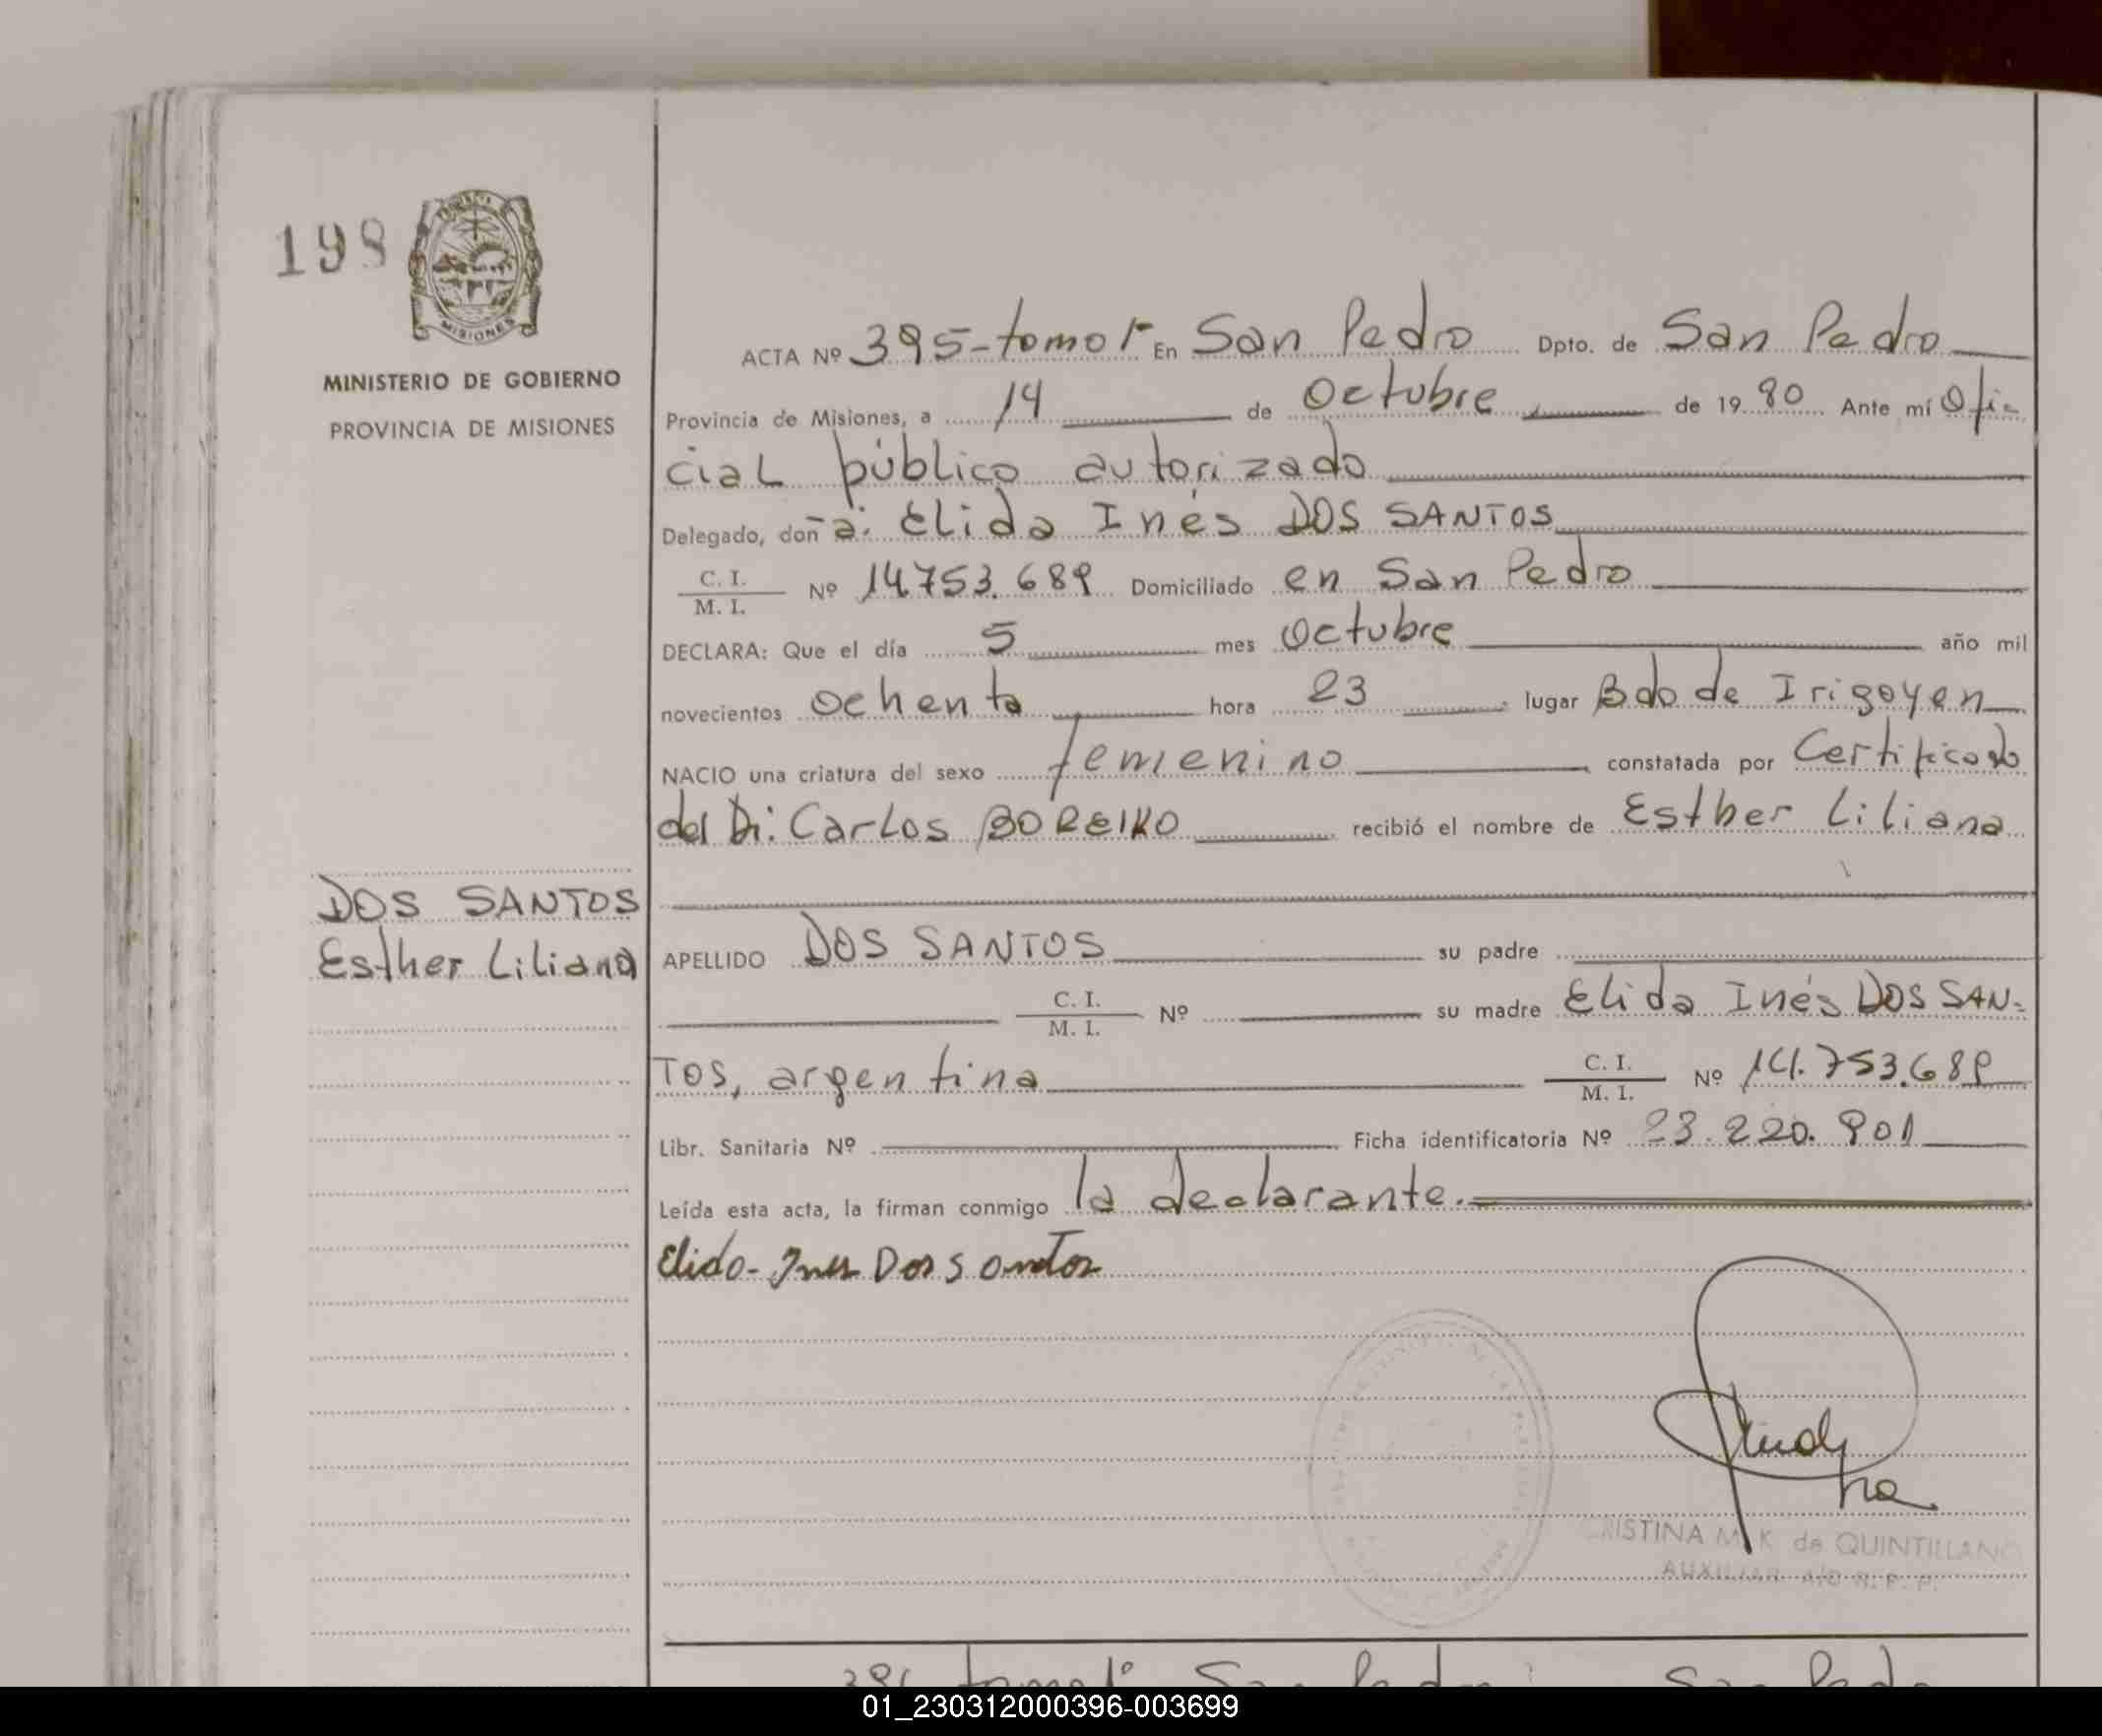 198
MISIONES
MINISTERIO DE GOBIERNO
PROVINCIA DE MISIONES
ACTA Nº 395-tomo 1º En San Pedro Dpto. de San Pedro
Provincia de Misiones, a 14 de Octubre de 1980 Ante mí Ofi-
cial público autorizado
Delegado, doña: Elida Inés DOS SANTOS
C. I. / M. I. Nº 14.753.689 Domiciliado en San Pedro
DECLARA: Que el día 5 mes Octubre año mil
novecientos ochenta hora 23 lugar Bdo de Irigoyen
NACIO una criatura del sexo femenino constatada por Certificado
del Dr. Carlos BOREIKO recibió el nombre de Esther Liliana
DOS SANTOS
Esther Liliana
APELLIDO DOS SANTOS su padre
C. I. / M. I. Nº su madre Elida Inés DOS SAN-
TOS, argentina C. I. / M. I. Nº 14.753.689
Libr. Sanitaria Nº Ficha identificatoria Nº 23.220.901
Leída esta acta, la firman conmigo la declarante.
Elida Ines Dos santos
CRISTINA M. K. de QUINTILLANO
AUXILIAR A/C R. P. P.
San Pedro San Pedro
01_230312000396-003699